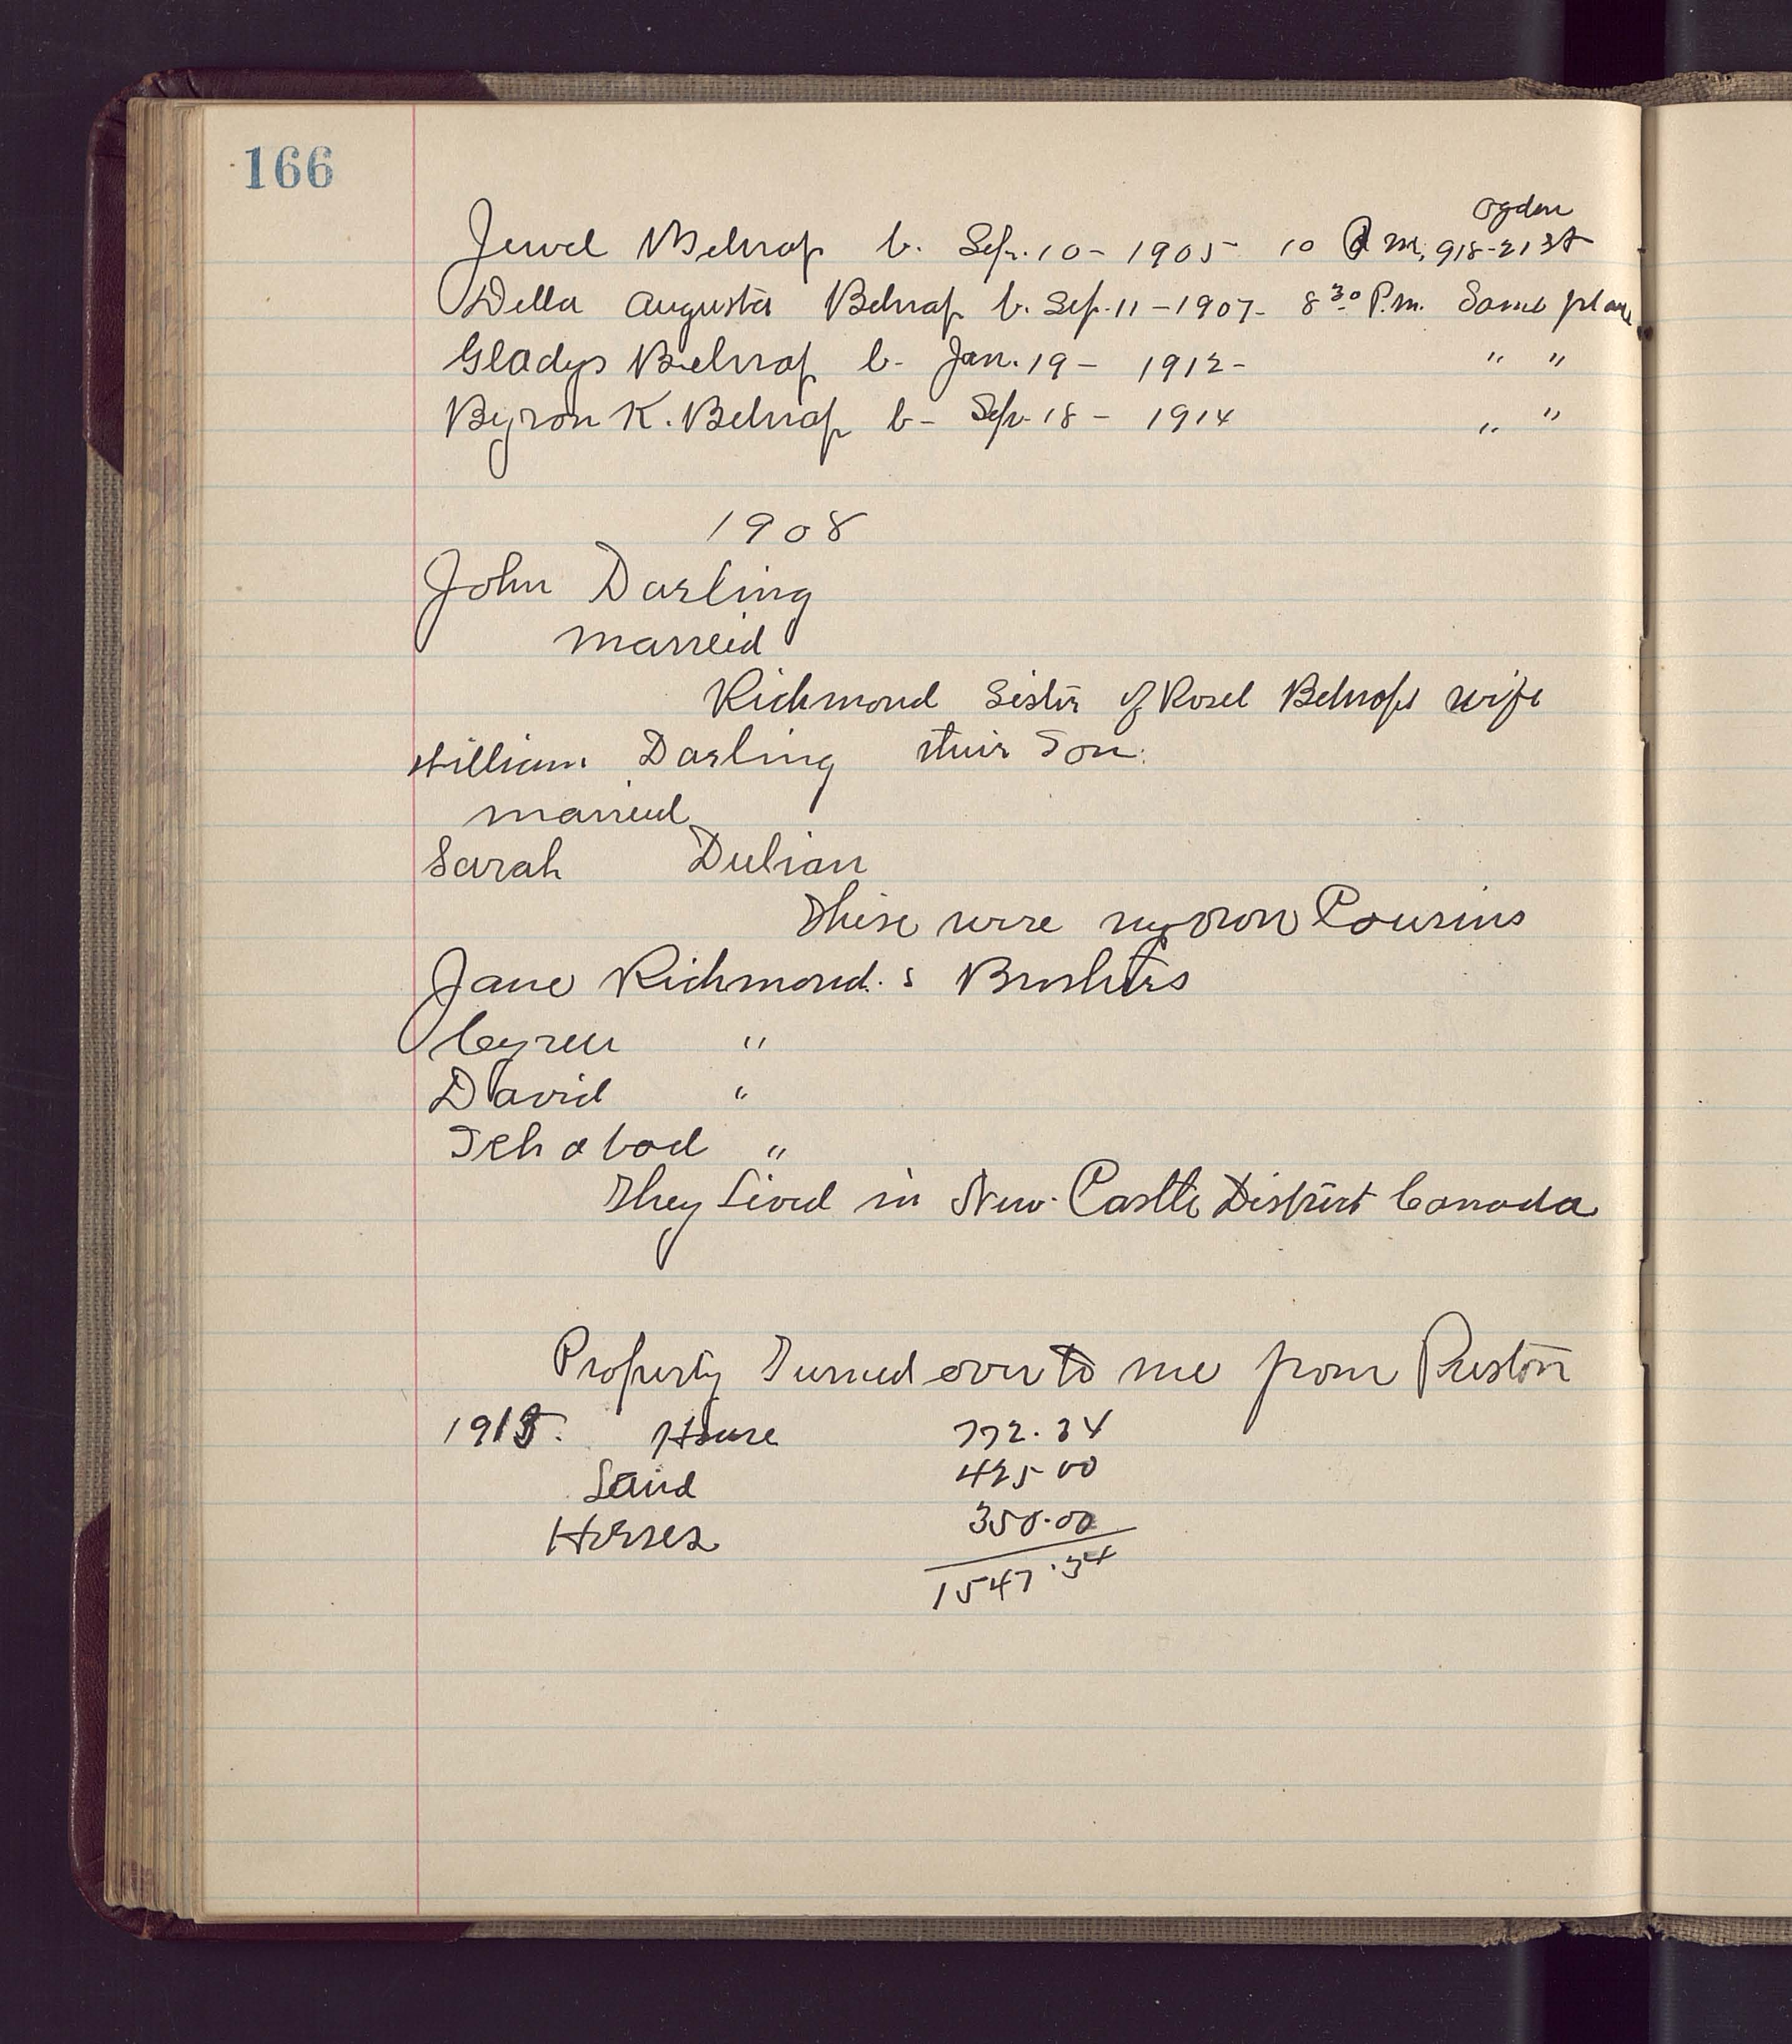 166
Ogden
Jewel Belnap b. Sep. 10 - 1905 10 P m, 918-21 st
Della Augusta Belnap b. Sep. 11 - 1907 - 8 30 P.m. Same place
Gladys Belnap b - Jan. 19 - 1912 - " "
Byron K. Belnap b - Sep. 18 - 1914 " "
1908
John Darling
marreid
Richmond Sister of Rosel Belnaps wife
William Darling their Son.
married
Sarah
These were my own Cousins
Jane Richmond.s Brothers
Cyren "
David "
Ichabod "
They Lived in New. Castle District Canada
Property Turned over to me from Preston
1915. House 772.34
Land 425 00
Horses 350.00
1547.34